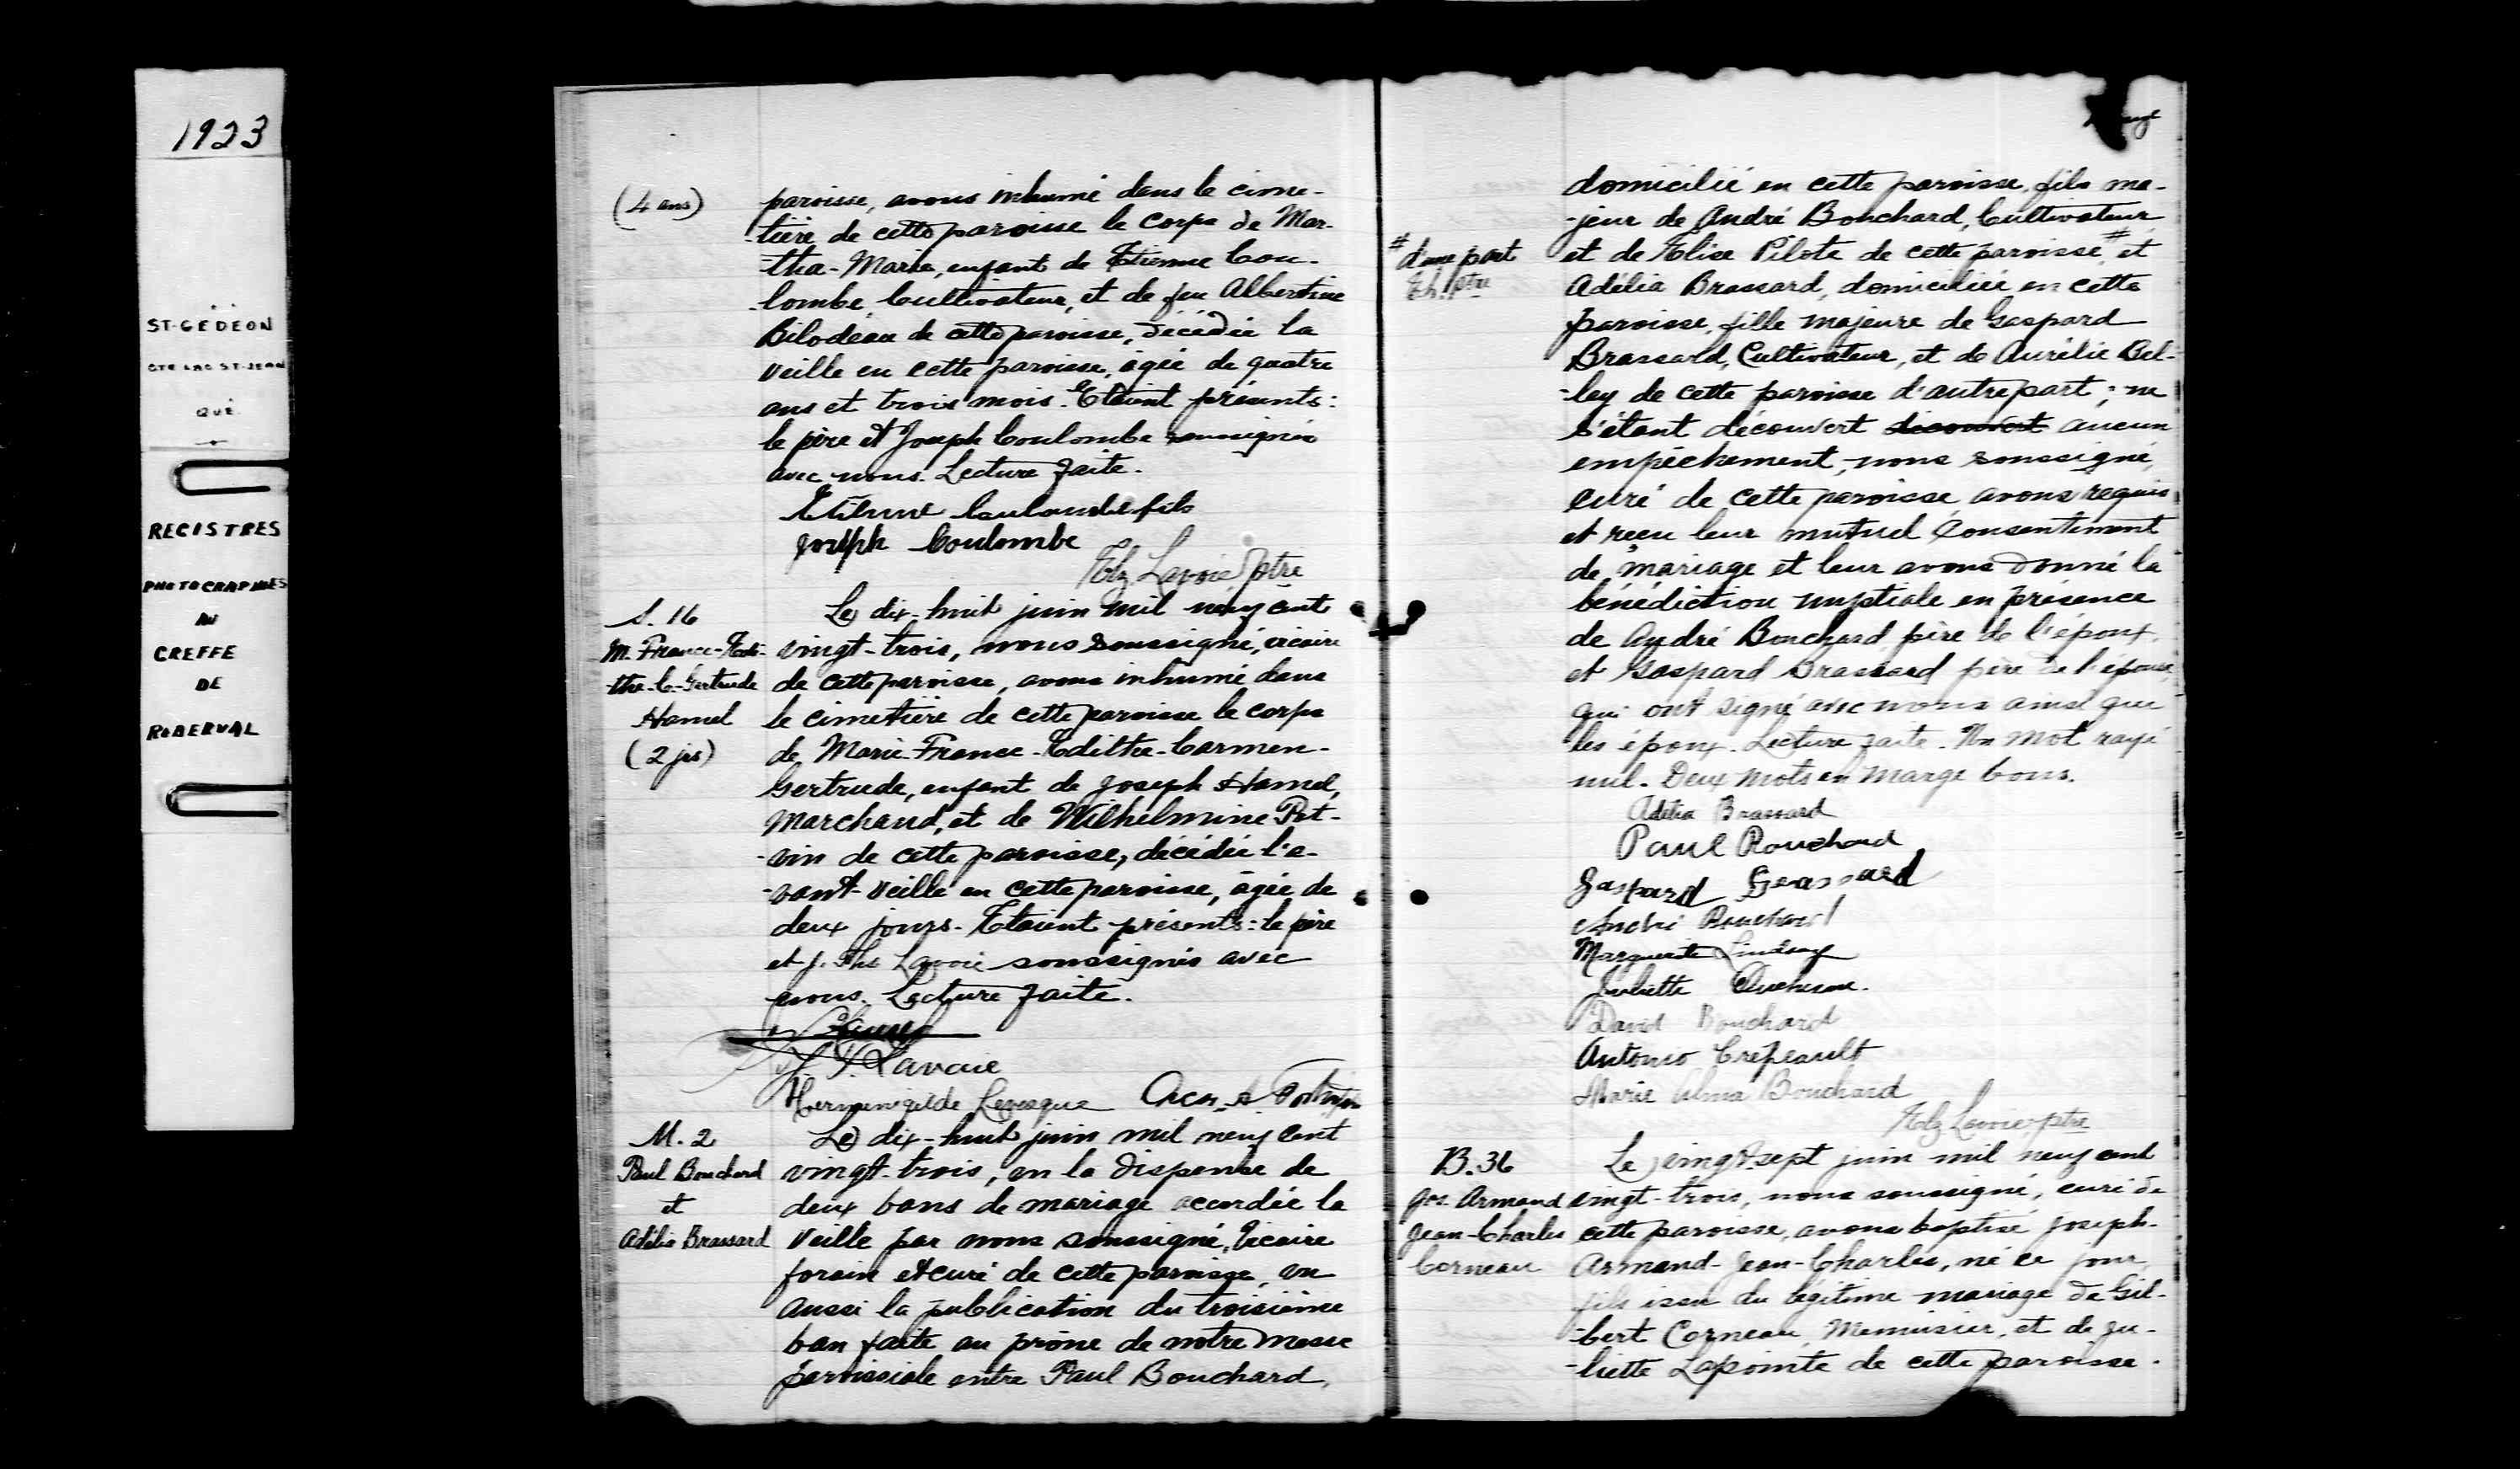 1923
ST-GEDEON
CTE LAC ST-JEAN
QUÉ.
REGISTRES
PHOTOGRAPHIÉS
AU
GREFFE
DE
ROBERVAL
(4 ans)
paroisse, avons inhumé dans le cime-
-tière de cette paroisse le corps de Mar-
-tha-Marie, enfant de Etienne Cou-
-lombe, Cultivateur, et de feu Albertine
Bilodeau de cette paroisse, décédée la
veille en cette paroisse, âgée de quatre
ans et trois mois. Etaient présents:
le père et Joseph Coulombe soussignés
avec nous. Lecture faite.
Etienne Coulombe fils
Joseph Coulombe
Elz Lavoie Ptre
S. 16
M. France-Edi-
-the-C-Gertrude
Hamel
(2 jrs)
Le dix-huit juin mil neuf cent
vingt-trois, nous soussigné, vicaire
de cette paroisse, avons inhumé dans
le cimetière de cette paroisse le corps
de Marie-France-Edithe-Carmen-
Gertrude, enfant de Joseph Hamel,
Marchand, et de Wilhelmine Pot-
-vin de cette paroisse, décédée l'a-
-vant-veille en cette paroisse, âgée de
deux jours. Etaient présents: le père
et J. Ths Lavoie soussignés avec
nous. Lecture faite.
J. T. Lavoie
Herménégilde Levesque
M. 2
Paul Bouchard
et
Adélia Brassard
Le dix-huit juin mil neuf cent
vingt-trois, vu la dispense de
deux bans de mariage accordée la
veille par nous soussigné, Vicaire
forain et curé de cette paroisse, vu
aussi la publication du troisième
ban faite au prône de notre messe
paroissiale entre Paul Bouchard,
domicilié en cette paroisse, fils ma-
-jeur de André Bouchard, Cultivateur
et de Elise Pilote de cette paroisse # et
# d'une part
ptre
Adélia Brassard, domiciliée en cette
paroisse, fille majeure de Gaspard
Brassard, Cultivateur, et de Aurélie Bel-
-ley de cette paroisse d'autre part; ne
s'étant découvert découvert aucun
empêchement, nous soussigné,
curé de cette paroisse, avons requis
et reçu leur mutuel Consentement
de mariage et leur avons donné la
bénédiction nuptiale en présence
de André Bouchard, père de l'époux,
et Gaspard Brassard père de l'épouse,
qui ont signé avec nous ainsi que
les époux. Lecture faite. Un mot rayé
nul. Deux mots en marge bons.
Adélia Brassard
Paul Bouchard
Gaspard Brassard
André Bouchard
Marguerite Lindsay
Juliette Duchesne.
David Bouchard
Antonio Crepeault
Marie Alma Bouchard
Elz Lavoie, ptre
B. 36
Jos. Armand
Jean-Charles
Corneau
Le vingt-sept juin mil neuf cent
vingt-trois, nous soussigné, curé de
cette paroisse, avons baptisé Joseph-
Armand-Jean-Charles, né ce jour,
fils issu du légitime mariage de Gil-
-bert Corneau, Menuisier, et de Ju-
-liette Lapointe de cette paroisse.